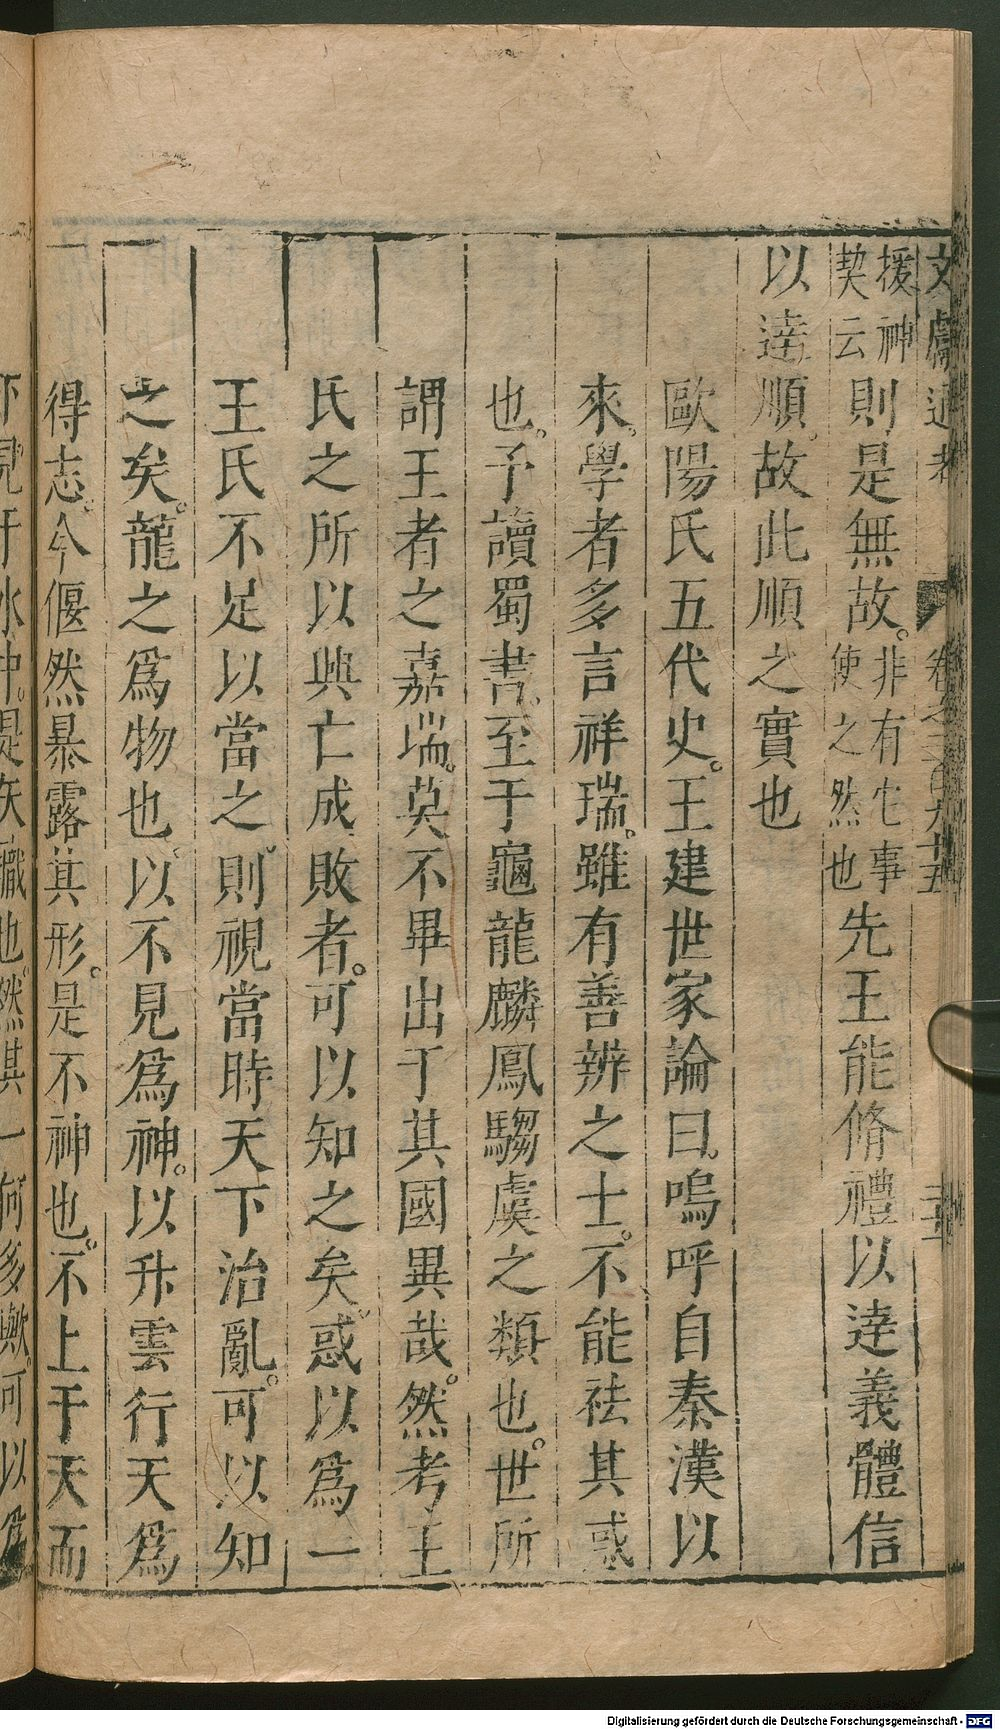 文獻通考 卷之二百九十五
援神契云則是無故。非有它事使之然也先王能脩禮以達義體信
以達順。故此順之實也
歐陽氏五代史。王建世家論曰。嗚呼自秦漢以
來。學者多言祥瑞。雖有善辨之士。不能祛其惑
也。予讀蜀書。至于龜龍麟鳳騶虞之類也。世所
謂王者之嘉瑞。莫不畢出于其國異哉。然考王
氏之所以興亡成敗者。可以知之矣。惑以爲一
王氏不足以當之。則視當時天下治亂。可以知
之矣。龍之爲物也。以不見爲神。以升雲行天爲
得志。今偃然暴露其形。是不神也。不上于天而
下見于水中。是失職也。然其一何多歟。可以爲
Digitalisierung gefördert durch die Deutsche Forschungsgemeinschaft - DFG